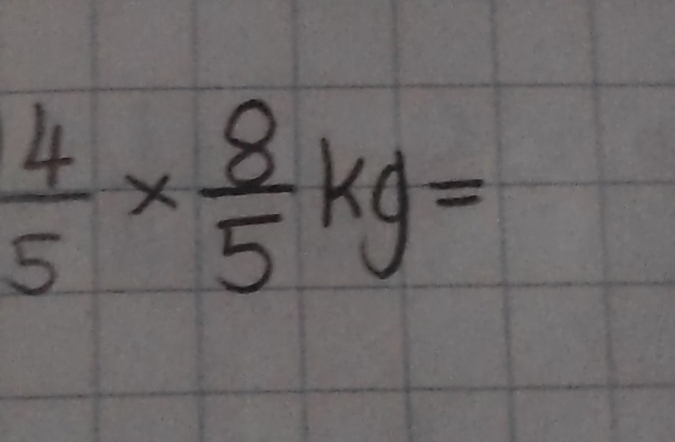 4/5 × 8/5 kg =